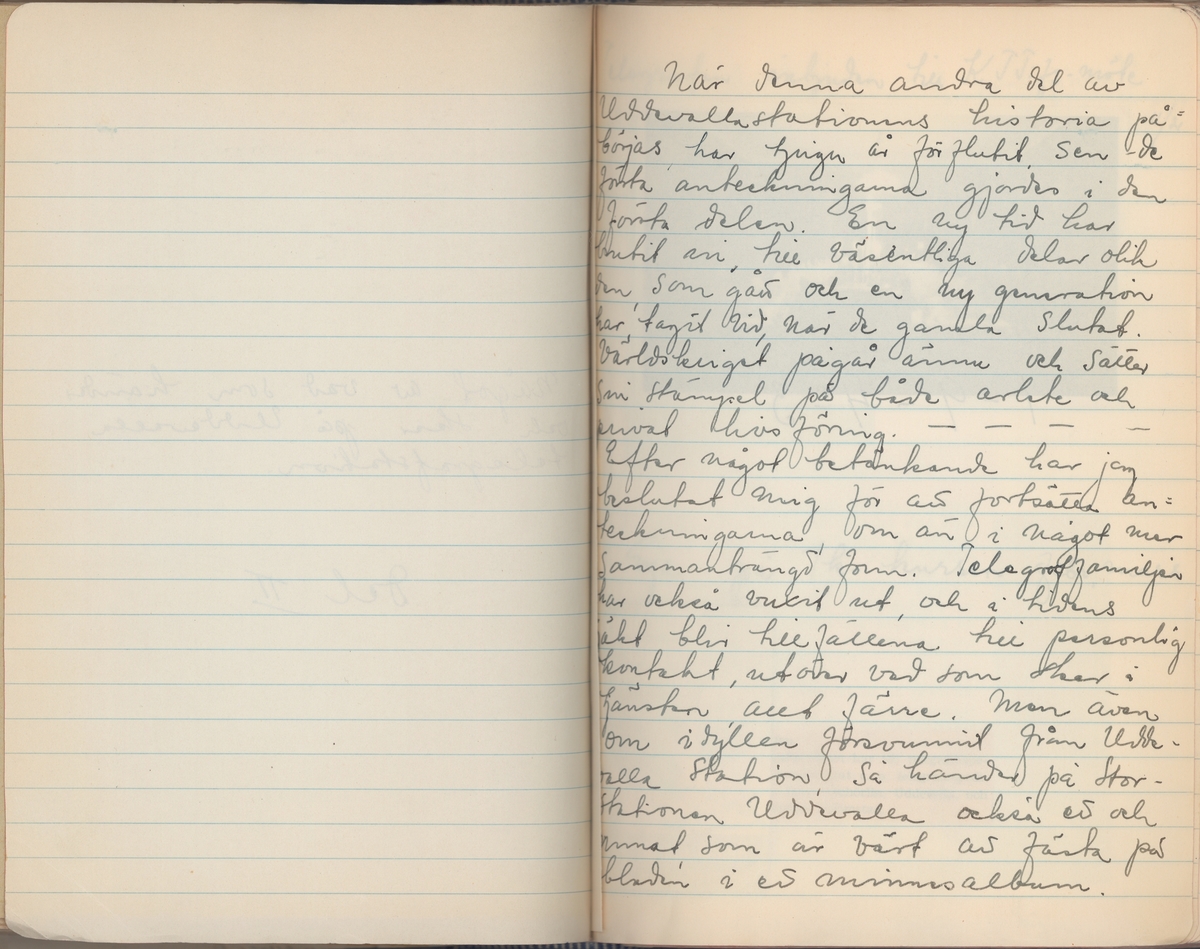 När denna andra del av
Uddevallastationens historia på=
börjas, har tjugu år förflutit, sen de
första anteckningarna gjordes i den
första delen. En ny tid har
brutit in, till väsentliga delar olik
den, som gått och en ny generation
har tagit vid, när de gamla slutat.
Världskriget pågår ännu och sätter
sin stämpel på både arbete och
privat livsföring. — — — —
Efter något betänkande har jag
beslutat mig för att fortsätta an=
teckningarna, om än i något mer
sammanträngd form. Telegraffamiljen
har också vuxit ut, och i tidens
jäkt blir tillfällena till personlig
kontakt, utöver vad som sker i
tjänsten, allt färre. Men även
om idyllen försvunnit från Udde-
valla station, så händer på Stor-
stationen Uddevalla också ett och
annat som är värt att fästa på
bladen i ett minnesalbum.